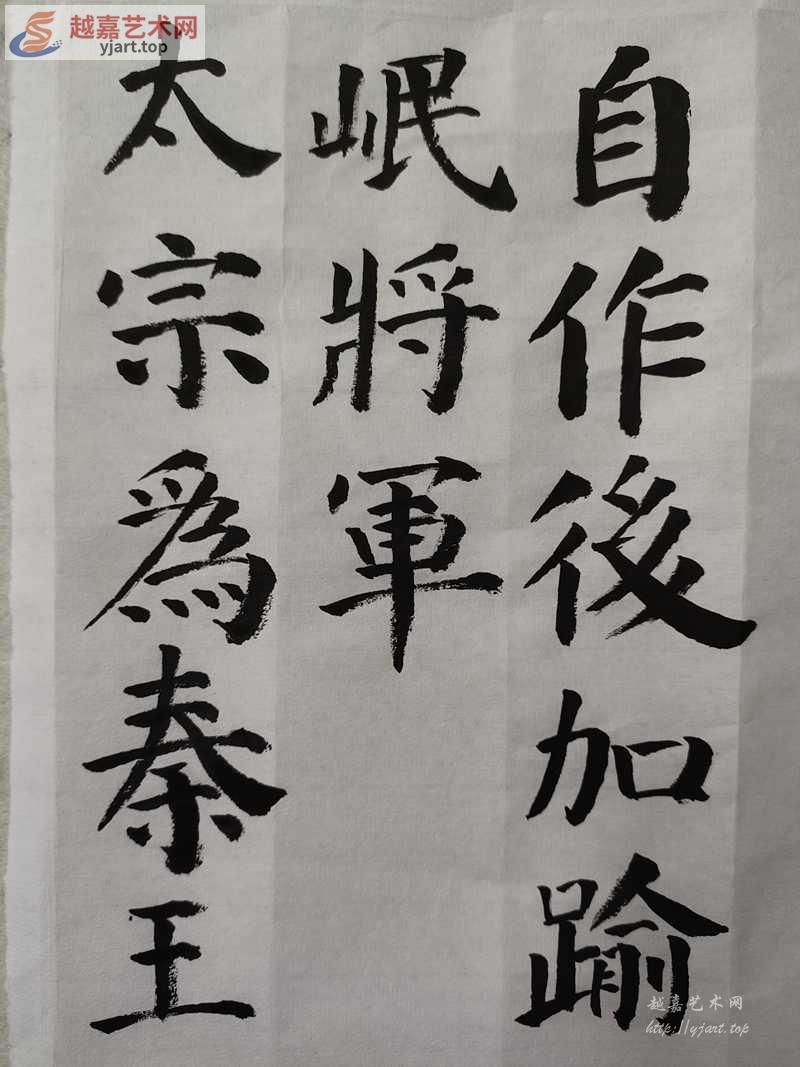 越嘉艺术网
yjart.top
自作後加踰
岷將軍
太宗爲秦王
越嘉艺术网
http://yjart.top